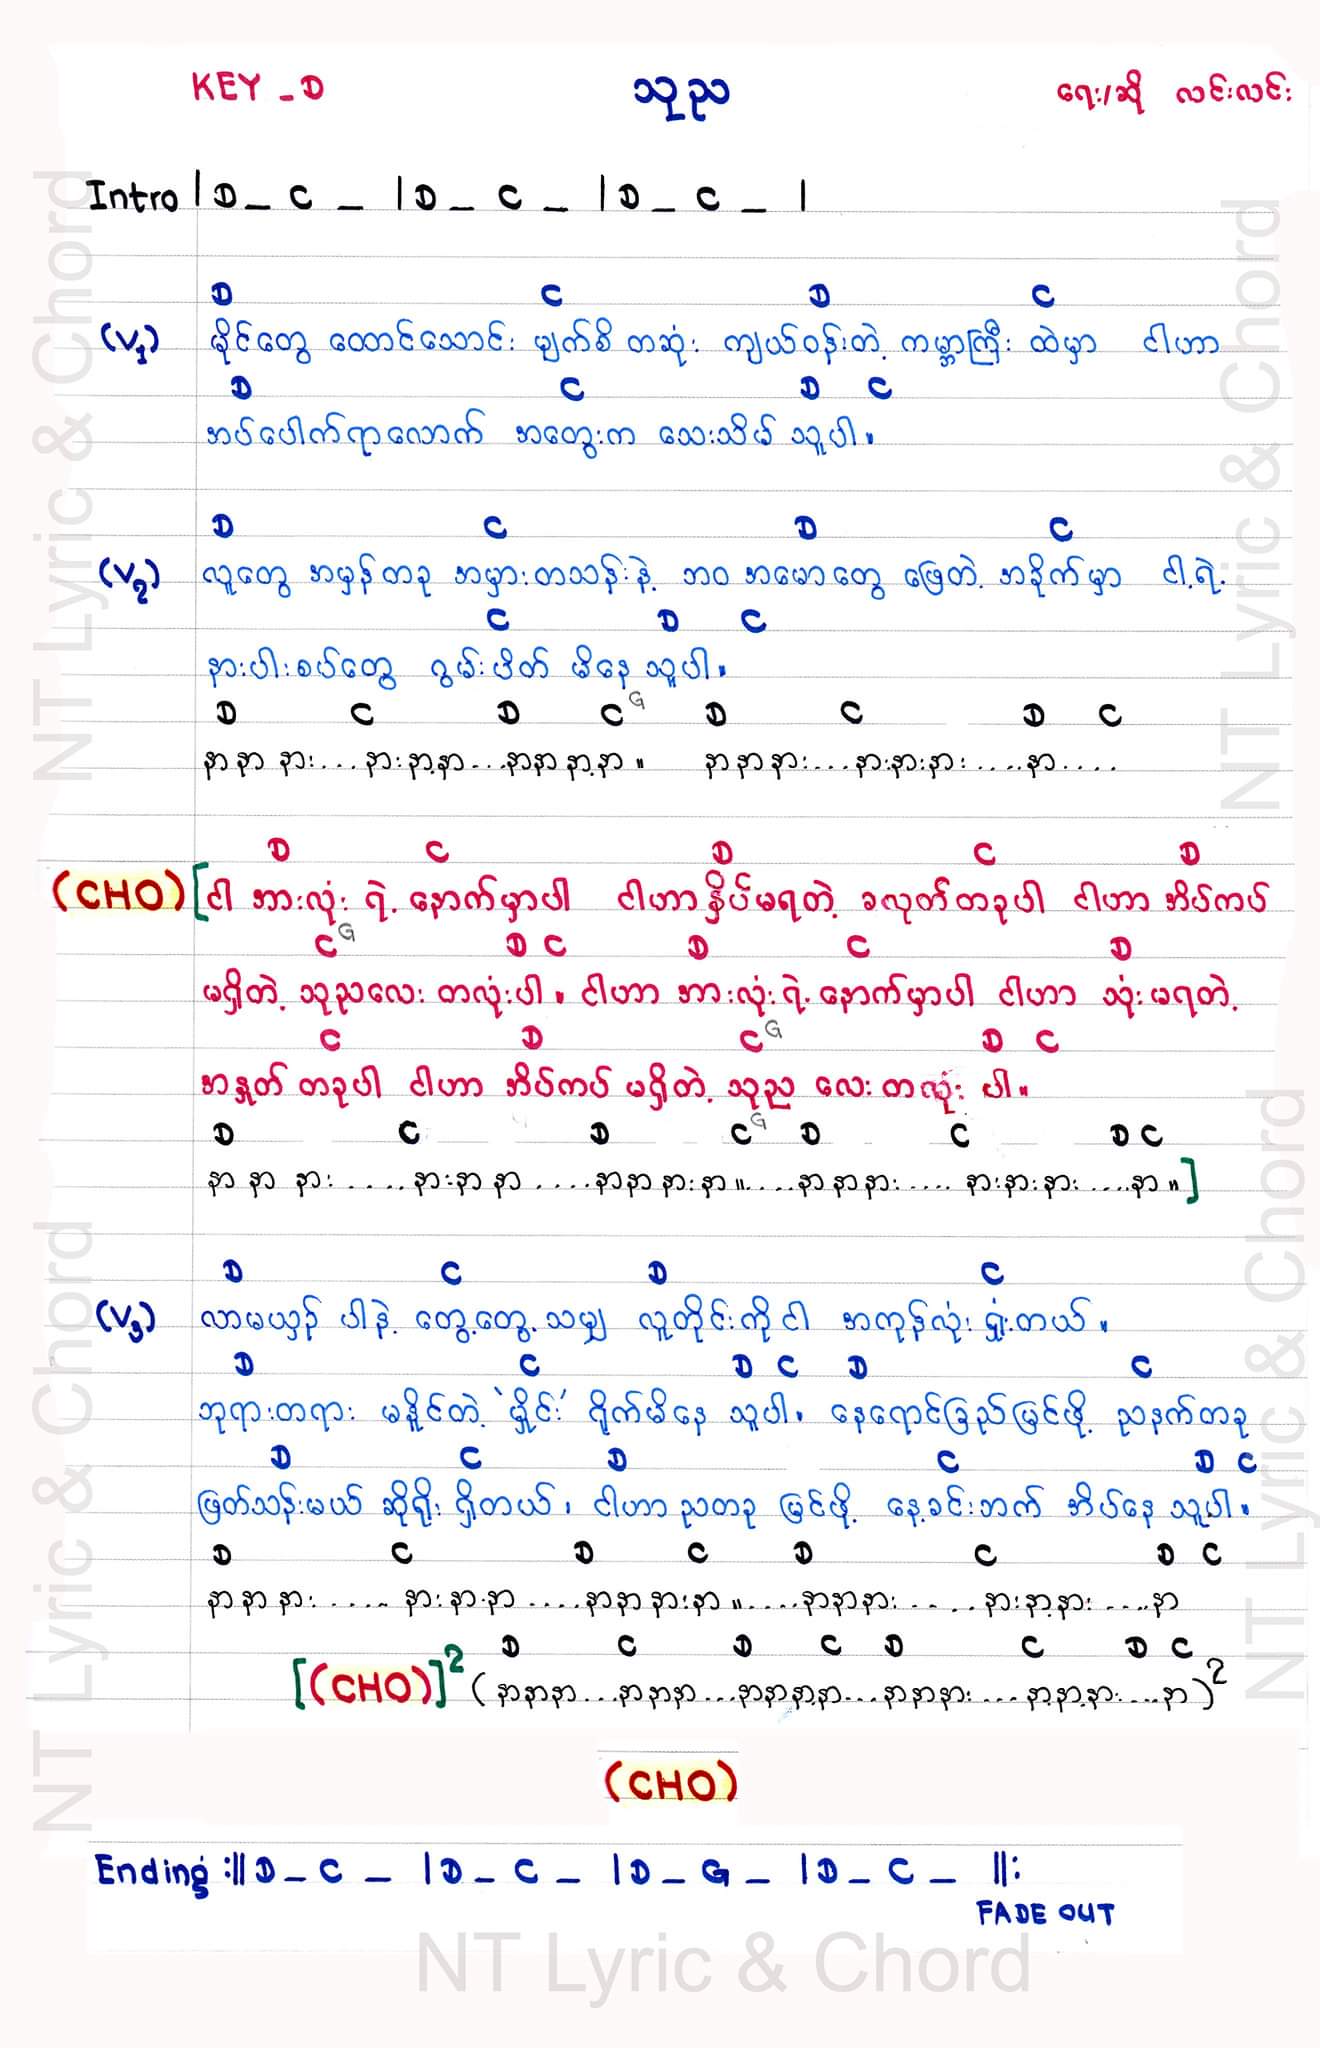 KEY - D သုည ရေး/ဆို လင်းလင်း
Intro | D _ C _ | D _ C _ | D _ C _ |
D C D C
(V1) မိုင်တွေ ထောင်သောင်း မျက်စိ တဆုံး ကျယ်ဝန်းတဲ့ ကမ္ဘာကြီး ထဲမှာ ငါဟာ
D C D C
အပ်ပေါက်ရာလောက် အတွေးက သေးသိမ် သူပါ။
D C D C
(V2) လူတွေ အမှန်တခု အမှားတသန်းနဲ့ ဘဝ အမောတွေ ဖြေတဲ့ အခိုက်မှာ ငါ့ရဲ့
C D C
နားပါးစပ်တွေ ဂွမ်းပိတ် မိနေ သူပါ။
D C D C G D C D C
နာ နာ နား... နားနာ့နာ...နာနာ နာ့နာ ။ နာ နာ နား....နားနားနား ....နာ....
D C D C D
(CHO) [ငါ အားလုံး ရဲ့ နောက်မှာပါ ငါဟာ နှိပ်မရတဲ့ ခလုတ်တခုပါ ငါဟာ အိပ်ကပ်
C G D C D C D
မရှိတဲ့ သုညလေး တလုံးပါ ။ ငါဟာ အားလုံးရဲ့ နောက်မှာပါ ငါဟာ သုံးမရတဲ့
C D C G D C
အနှုတ် တခုပါ ငါဟာ အိပ်ကပ် မရှိတဲ့ သုည လေး တလုံး ပါ။
D C D C G D C D C
နာ နာ နား ....နားနာ နာ ....နာနာ နားနာ ။....နာ နာ နား .... နားနားနား ....နာ ။]
D C D C
(V3) လာမယှဉ် ပါနဲ့ တွေ့တွေ့သမျှ လူတိုင်းကို ငါ အကုန်လုံး ရှုံးတယ် ။
D C D C D C
ဘုရားတရား မနိုင်တဲ့ 'မှိုင်း' ရှိုက်မိနေ သူပါ။ နေရောင်ခြည်မြင်ဖို့ ညနက်တခု
D C D C D C
ဖြတ်သန်းမယ် ဆိုရိုး ရှိတယ် ၊ ငါဟာ ညတခု မြင်ဖို့ နေ့ခင်းဘက် အိပ်နေ သူပါ ။
D C D C D C D C
နာ နာ နား ..... နား နာ နာ ....နာနာ နားနာ ။.....နာနာနား .... နားနာ့နား ....နာ
D C D C D C D C
[(CHO)]2 (နာနာနာ ...နာနာနာ ...နာနာနာ့နာ...နာနာနား .... နာ့နာ့နား ....နာ )2
(CHO)
Ending :|| D _ C _ | D _ C _ | D _ G _ | D _ C _ ||:
FADE OUT
NT Lyric & Chord
NT Lyric & Chord
NT Lyric & Chord
NT Lyric & Chord
NT Lyric & Chord